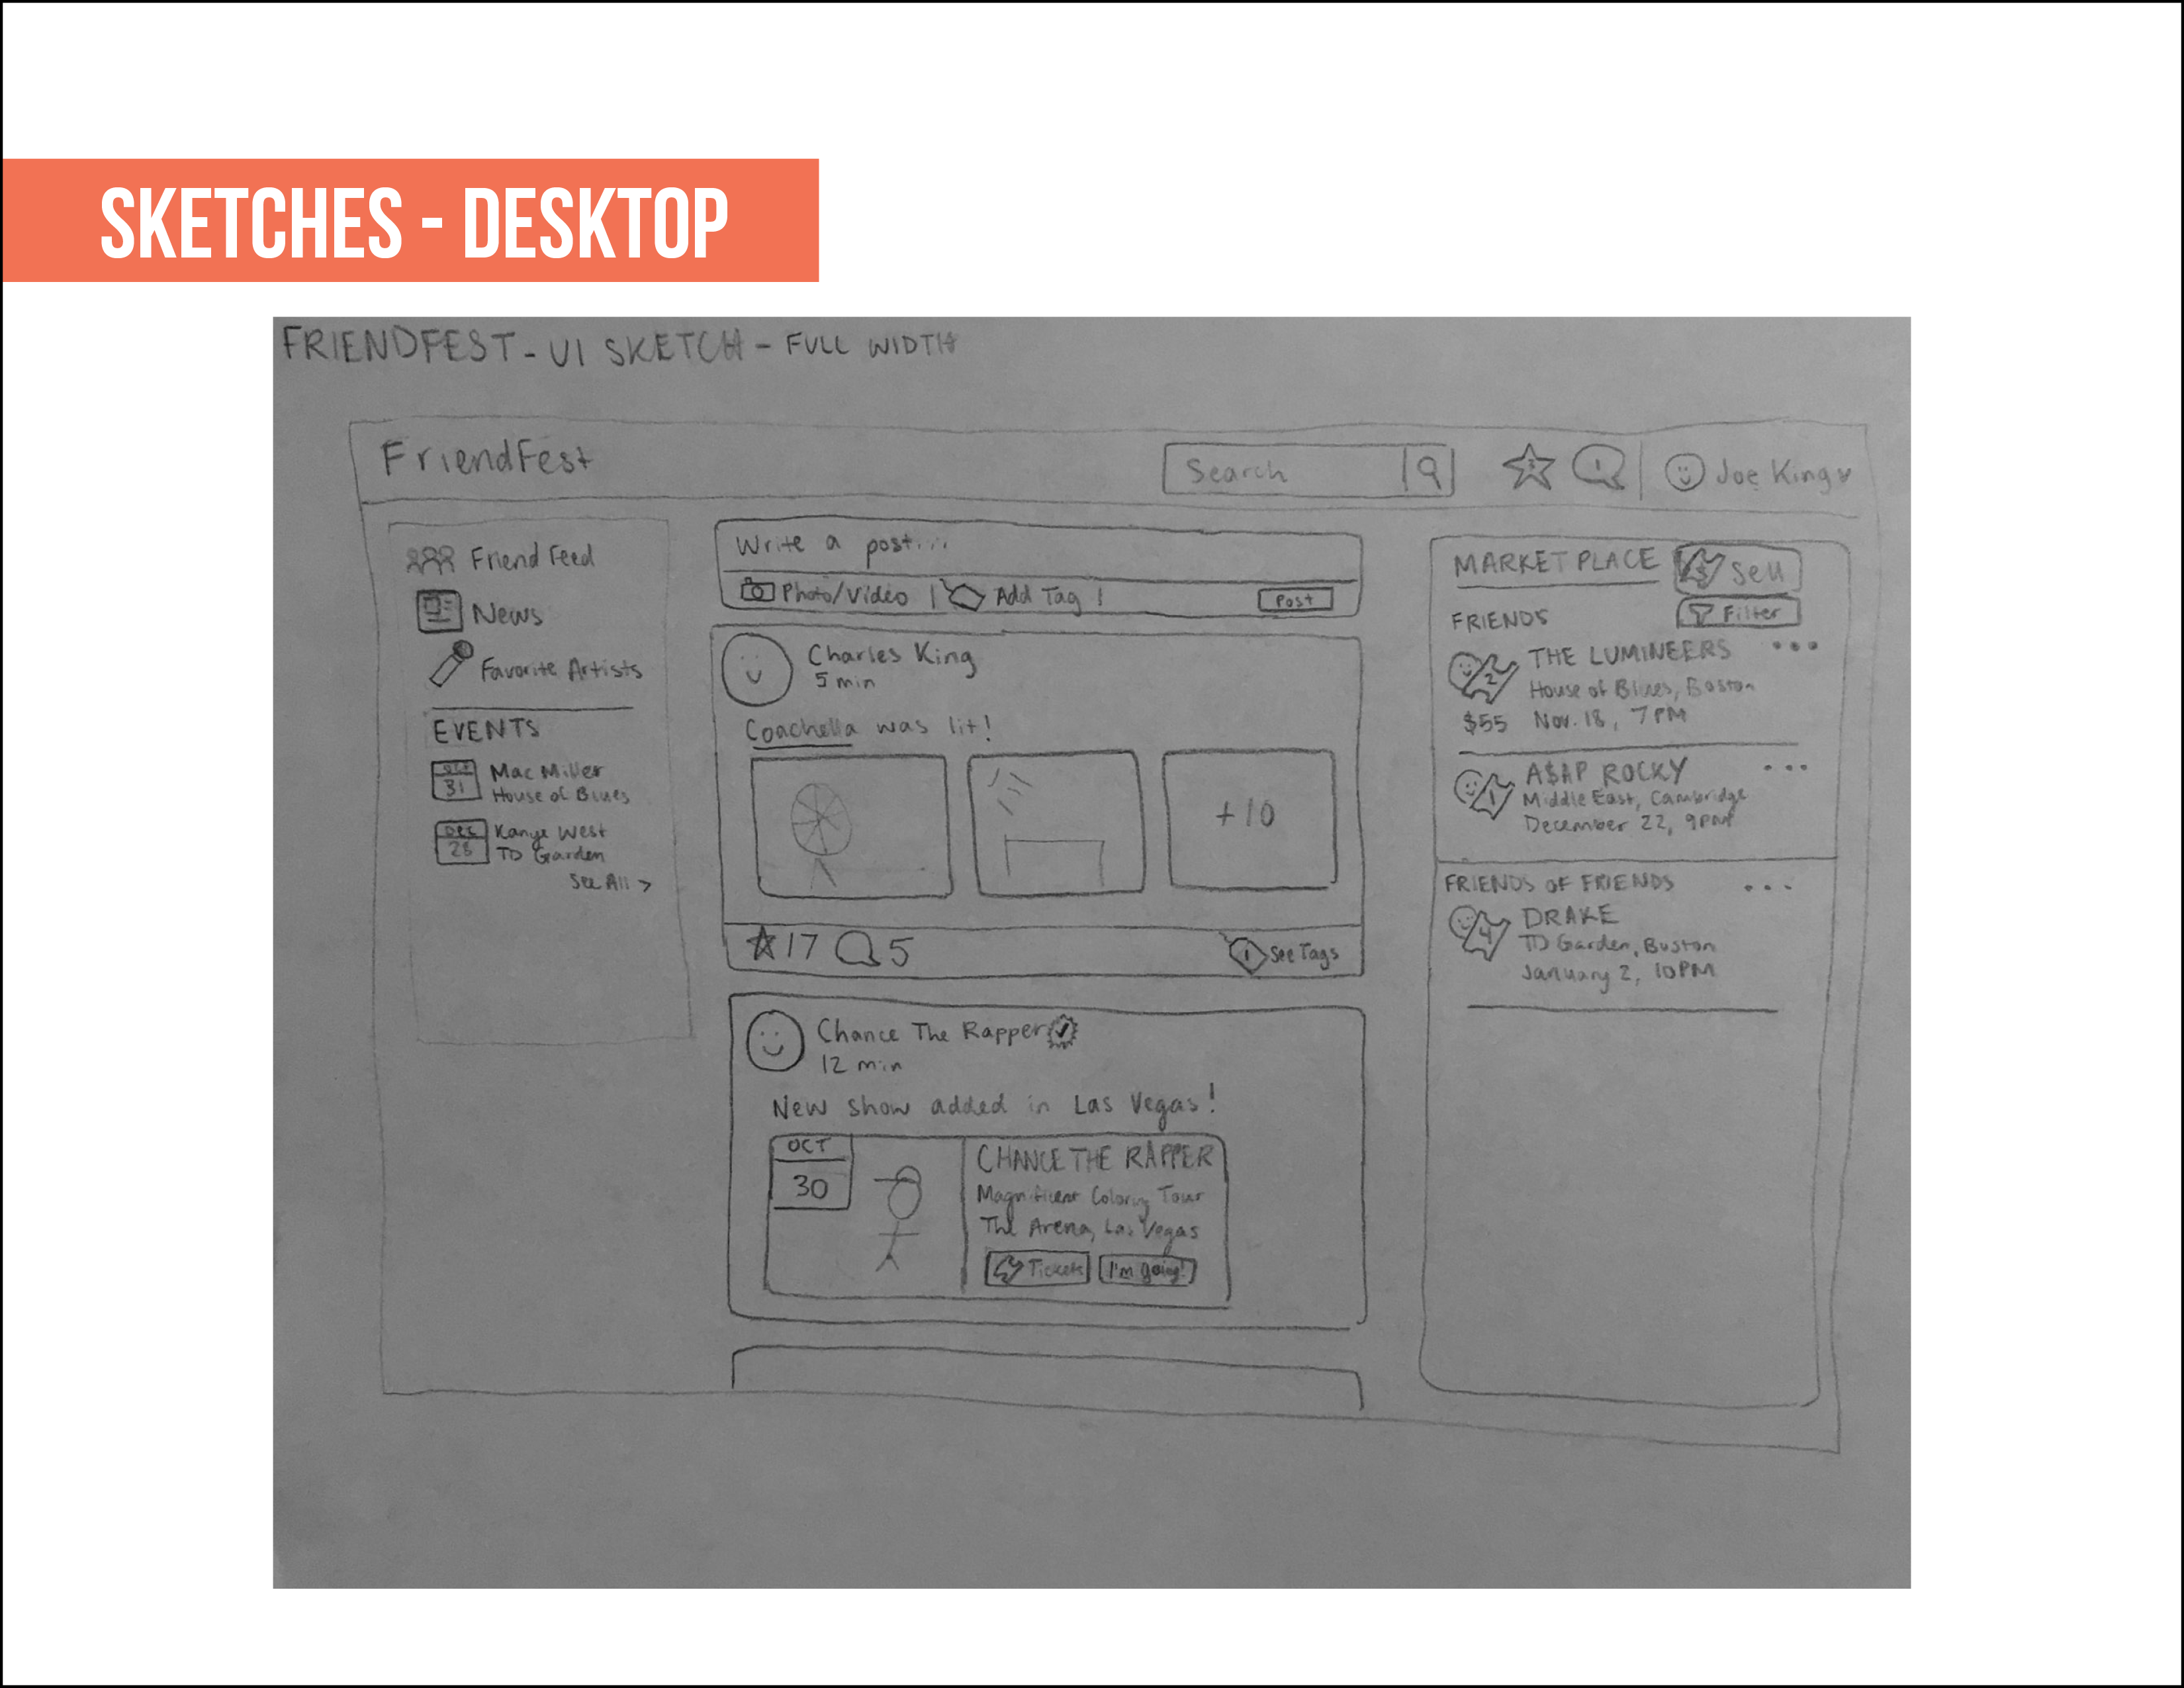 SKETCHES - DESKTOP
FRIENDFEST - UI SKETCH - FULL WIDTH
FriendFest
Search
1
Joe King
Friend Feed
News
Favorite Artists
EVENTS
31
Mac Miller
House of Blues
DEC
28
Kanye West
TD Garden
See All >
Write a post...
Photo/Video | Add Tag |
Post
Charles King
5 min
Coachella was lit!
+10
17 5
1 See Tags
Chance The Rapper
12 min
New show added in Las Vegas!
OCT
30
CHANCE THE RAPPER
Magnificent Coloring Tour
The Arena, Las Vegas
Tickets
I'm going!
MARKETPLACE
Sell
FRIENDS
Filter
2
THE LUMINEERS
House of Blues, Boston
$55 Nov. 18, 7PM
1
A$AP ROCKY
Middle East, Cambridge
December 22, 9PM
FRIENDS OF FRIENDS
4
DRAKE
TD Garden, Boston
January 2, 10PM